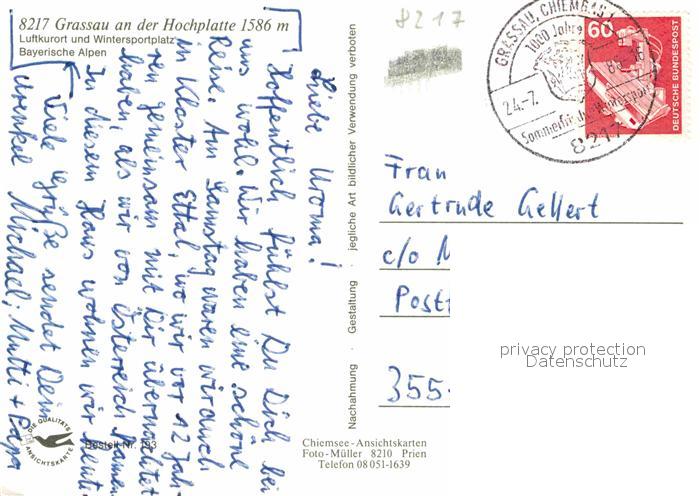 8217 Grassau an der Hochplatte 1586 m
Luftkurort und Wintersportplatz
Bayerische Alpen
8217
Liebe Uroma!
Hoffentlich fühlst Du Dich bei
uns wohl. Wir haben eine schöne
Reise. Am Samstag waren wir auch
in Kloster Ettal, wo wir vor 12 Jah-
ren gemeinsam mit Dir übernachtet
haben, als wir von Österreich kamen
In diesem Haus wohnen wir heute.
Viele Grüße sendet Dein
Urenkel Michael, Mutti + Papa
DIE QUALITÄTS
ANSICHTSKARTE
Bestell-Nr. 193
Nachahmung · Gestaltung · jegliche Art bildlicher Verwendung verboten
Chiemsee-Ansichtskarten
Foto-Müller 8210 Prien
Telefon 08051-1639
GRASSAU, CHIEMGAU
1000 Jahre
24.-7.
8217
60
DEUTSCHE BUNDESPOST
Frau
Gertrude Gellert
c/o
Post
355
privacy protection
Datenschutz